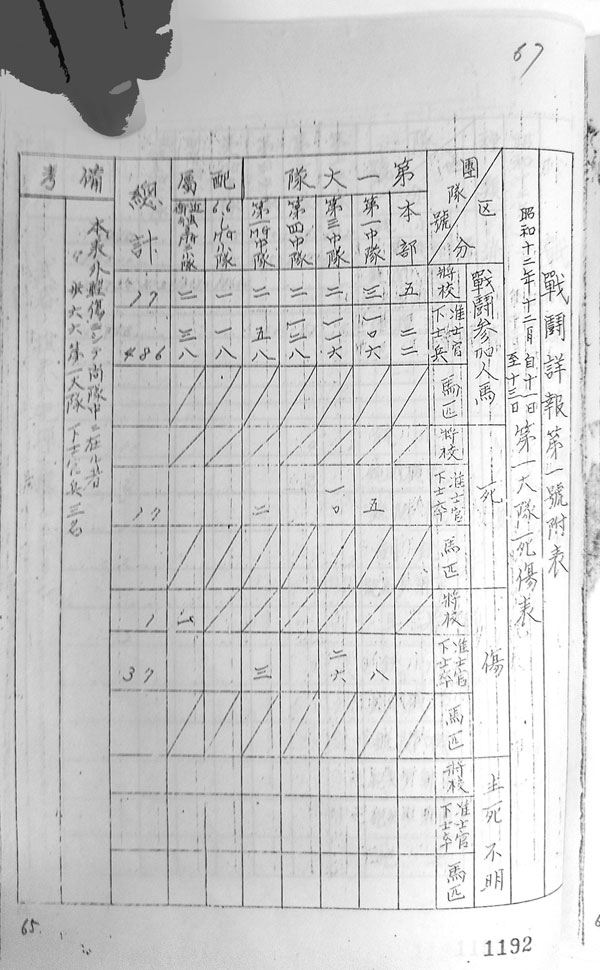 67
戰鬪詳報第一號附表
昭和十二年十二月自十一日至十三日第一大隊死傷表
區分
團隊號
戰鬪參加人馬
死
傷
生死不明
將校
准士官下士兵
馬匹
將校
准士官下士卒
馬匹
將校
准士官下士卒
馬匹
將校
准士官下士卒
馬匹
第一大隊
本部
五
二二
第一中隊
三
一〇六
五
八
第三中隊
二
一一六
一〇
二六
第四中隊
二
一二八
第一MG中隊
二
五八
二
三
配屬
一
一八
小隊
二
三八
一
總計
17
486
17
1
37
備考
本表外輕傷ニシテ尚隊中ニ在ル者
第一大隊 下士官兵三名
65
1192